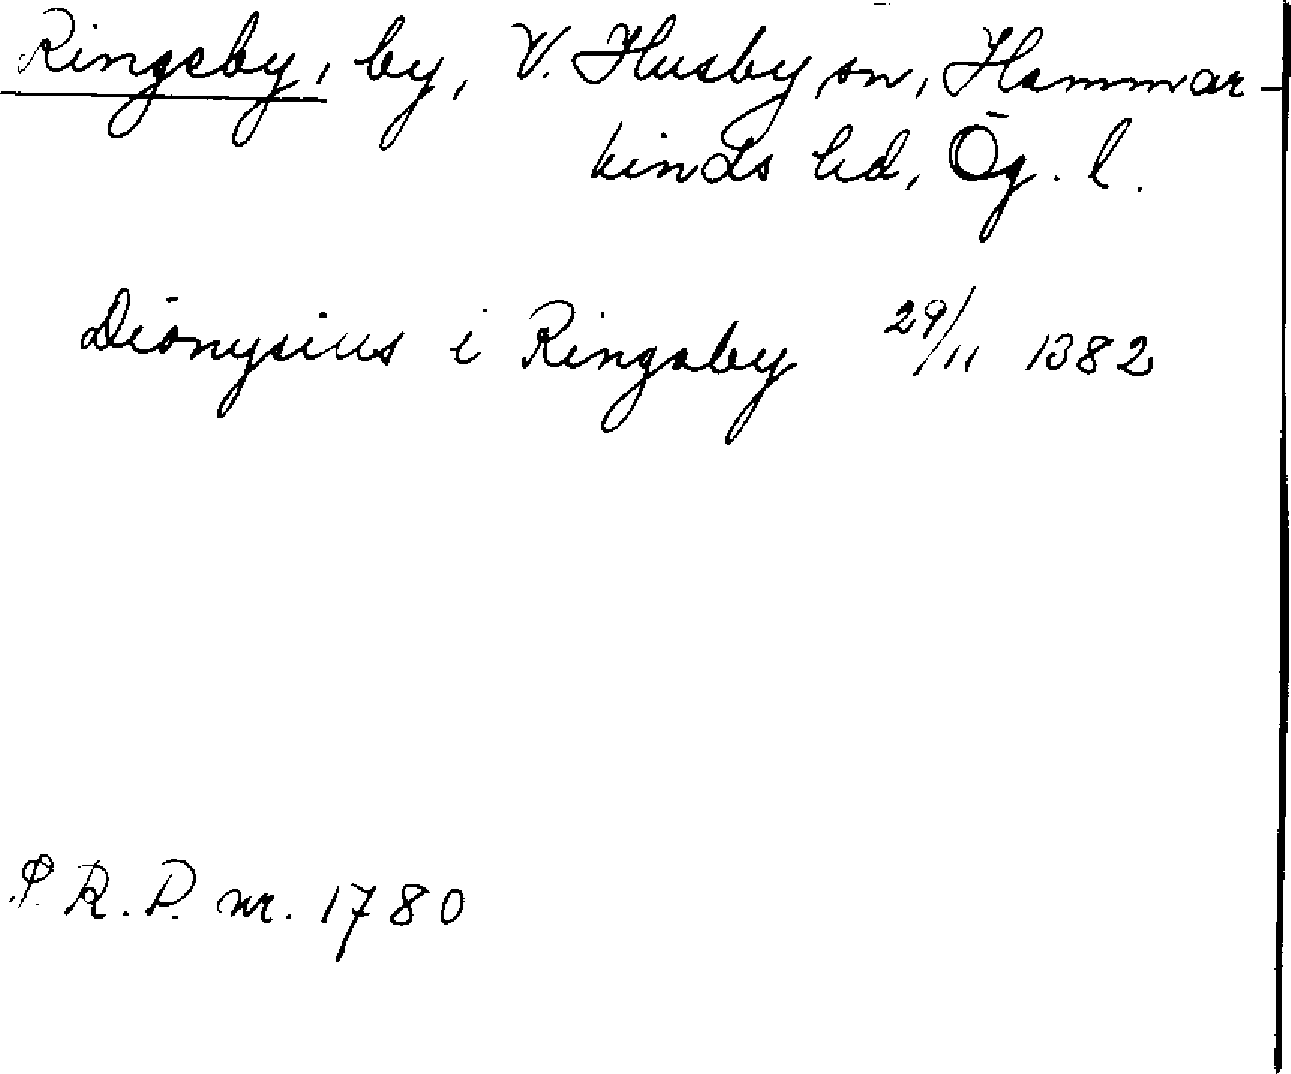 Ringsby, by, V. Husby sn, Hammar-
kinds hd, Ög. l.
Dionysius i Ringsby 29/11 1382
P. R. P. nr. 1780